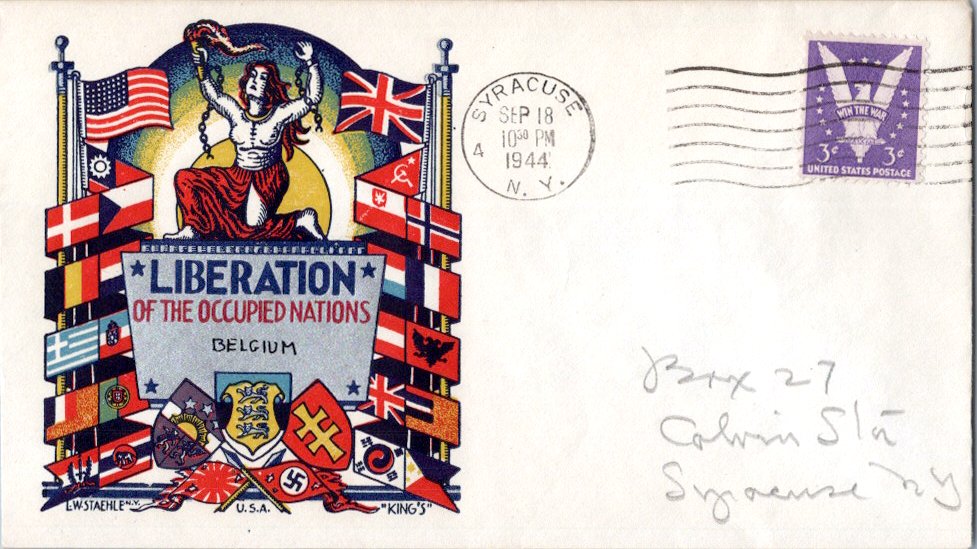 LIBERATION
OF THE OCCUPIED NATIONS
BELGIUM
L.W. STAEHLE N.Y.
U.S.A.
"KING'S"
SYRACUSE
SEP 18
10 30 PM
1944
N.Y.
4
WIN THE WAR
3¢ 3¢
UNITED STATES POSTAGE
Box 27
Colvin Sta
Syracuse NY